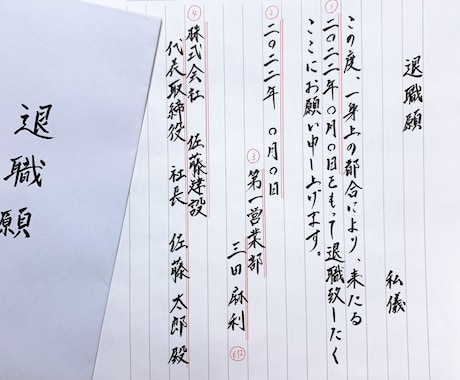 退職願
私儀
この度、一身上の都合により、来たる
①
二〇二二年〇月〇日をもって退職致したく
ここにお願い申し上げます。
②
二〇二二年 〇月〇日
③
第一営業部
三田麻利
④
株式会社 佐藤建設
代表取締役 社長 佐藤太郎殿
退職願